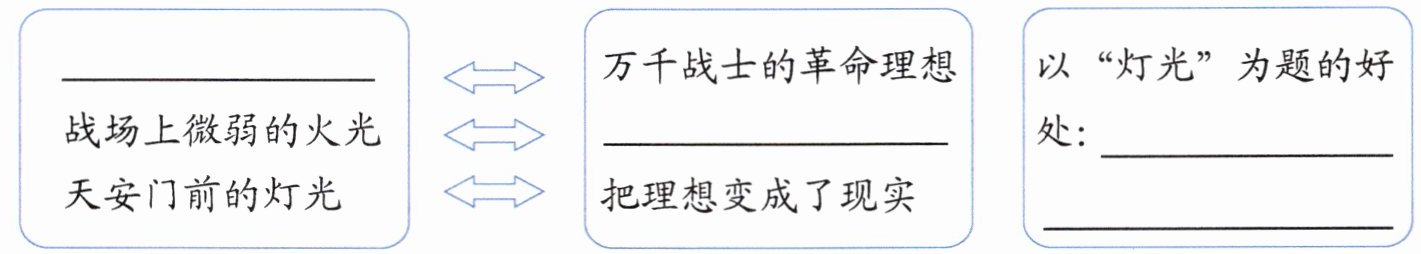 战场上微弱的火光
天安门前的灯光
万千战士的革命理想
把理想变成了现实
以“灯光”为题的好
处: